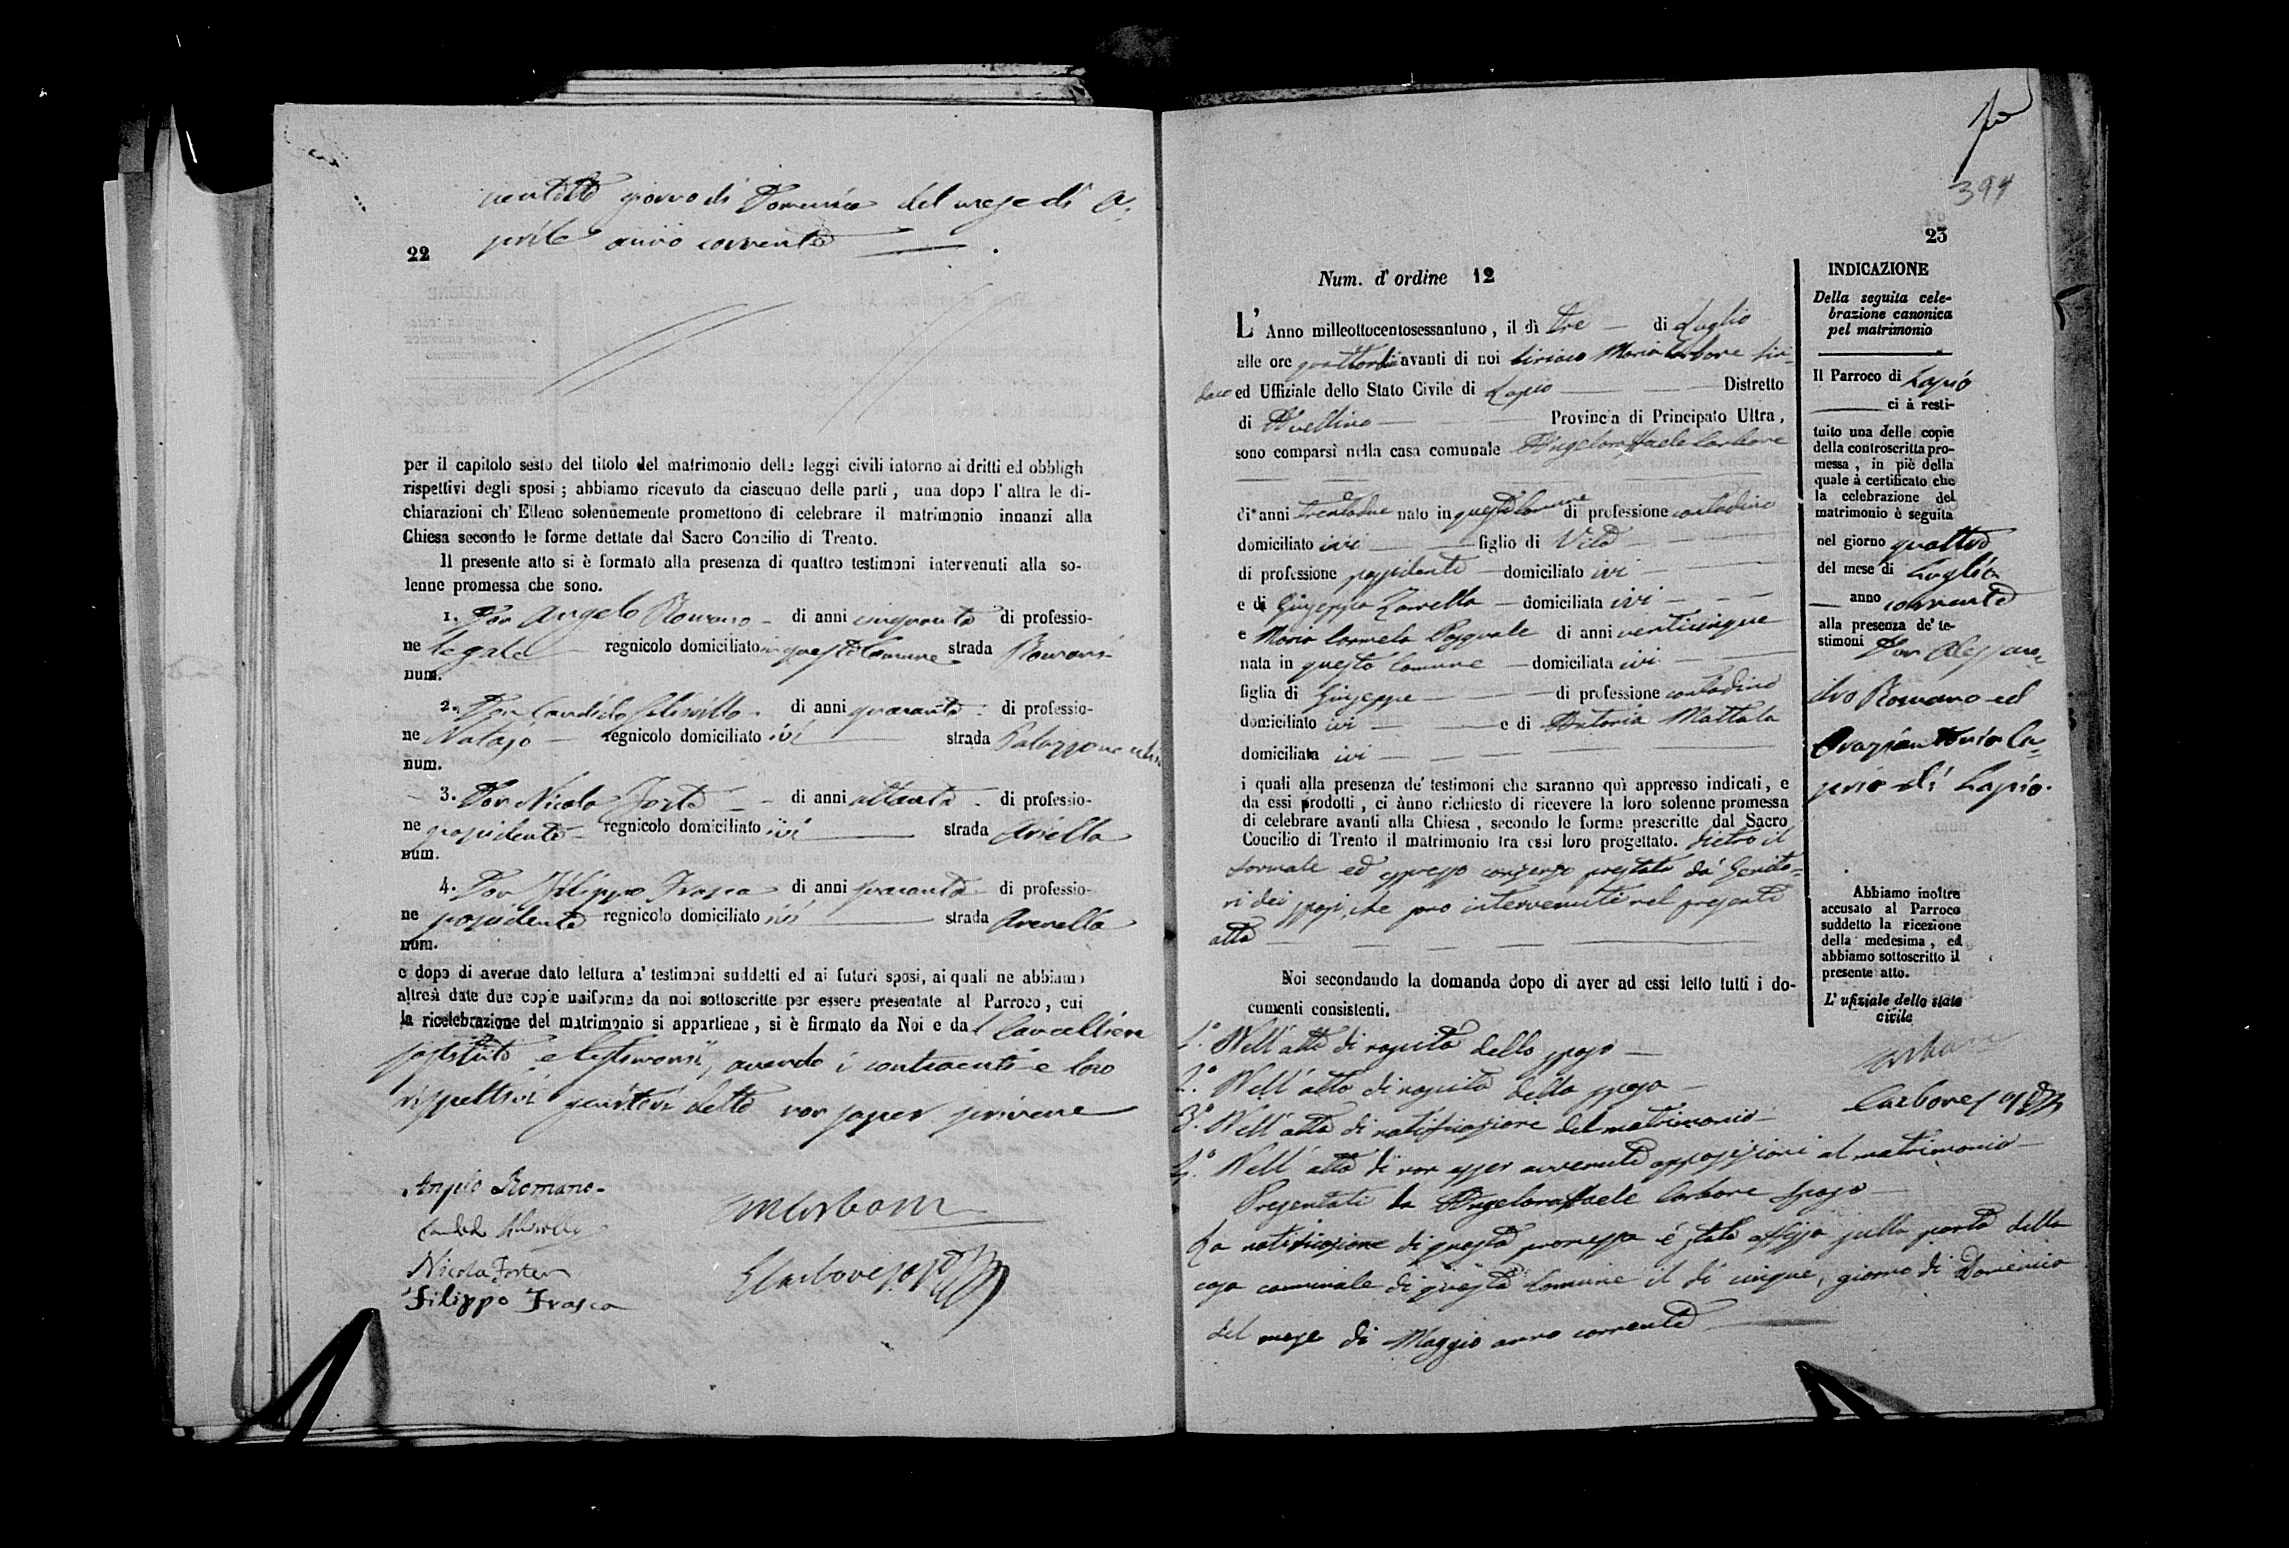 ventotto giorno di Domenica del mese di A-
prile anno corrente
22
per il capitolo sesto del titolo del matrimonio delle leggi civili intorno ai dritti ed obbligh
rispettivi degli sposi ; abbiamo ricevuto da ciascuno delle parti , una dopo l' altra le di-
chiarazioni ch' Elleno solennemente promettono di celebrare il matrimonio innanzi alla
Chiesa secondo le forme dettate dal Sacro Concilio di Trento.
Il presente atto si è formato alla presenza di quattro testimoni intervenuti alla so-
lenne promessa che sono.
1. Don Angelo Romano di anni cinquanta di professio-
ne legale regnicolo domiciliato in questo Comune strada Romani
num.
2. Don Candido di anni quaranta di professio-
ne Notajo regnicolo domiciliato ivi strada
num.
3. Don Nicola Forte di anni ottanta di professio-
ne possidente regnicolo domiciliato ivi strada Ariella
num.
4. Don Filippo Frasca di anni di professio-
ne possidente regnicolo domiciliato ivi strada Arenella
num.
e dopo di averne dato lettura a' testimoni suddetti ed ai futuri sposi, ai quali ne abbiamo
altresì date due copie uniforme da noi sottoscritte per essere presentate al Parroco, cui
la ricelebrazione del matrimonio si appartiene, si è firmato da Noi e dal Cancelliere
sostituto e testimonii, avendo i contraenti e loro
rispettivi genitori detto non saper scrivere
Angelo Romano
Nicola Forte
Filippo Frasca
394
23
Num. d' ordine 12
L' Anno milleottocentosessantuno, il dì tre di Luglio
alle ore quattordici avanti di noi Ciriaco Maria Carbone Sin-
daco ed Uffiziale dello Stato Civile di Lapio Distretto
di Avellino Provincia di Principato Ultra,
sono comparsi nella casa comunale Angeloraffaele Carbone
di anni trentadue nato in questo Comune di professione contadino
domiciliato ivi figlio di Vito
di professione possidente domiciliato ivi
e di Giuseppa Zarrella domiciliata ivi
e Maria Carmela Pasquale di anni venticinque
nata in questo Comune domiciliata ivi
figlia di Giuseppe di professione contadino
domiciliato ivi e di Antonia Mattala
domiciliata ivi
i quali alla presenza de' testimoni che saranno quì appresso indicati, e
da essi prodotti, ci ànno richiesto di ricevere la loro solenne promessa
di celebrare avanti alla Chiesa, secondo le forme prescritte dal Sacro
Concilio di Trento il matrimonio tra essi loro progettato. dietro il
formale ed espresso consenso prestato da' Genito-
ri dei sposi, che sono intervenuti nel presente
atto
Noi secondando la domanda dopo di aver ad essi letto tutti i do-
cumenti consistenti.
1.º Nell' atto di nascita dello sposo
2.º Nell' atto di nascita della sposa
3.º Nell' atto di notificazione del matrimonio
4.º Nell' atto di non esser avvenute opposizioni al matrimonio
Presentati da Angeloraffaele Carbone sposo
La notificazione di questa promessa è stata affissa sulla porta della
casa comunale di questo Comune il dì cinque, giorno di Domenica
del mese di Maggio anno corrente
INDICAZIONE
Della seguita cele-
brazione canonica
pel matrimonio
Il Parroco di Lapio
ci à resti-
tuito una delle copie
della controscritta pro-
messa, in piè della
quale à certificato che
la celebrazione del
matrimonio è seguita
nel giorno quattro
del mese di Luglio
anno corrente
alla presenza de' te-
stimoni Don Alessan-
dro Romano ed
Oraziantonio Ca-
prio di Lapio.
Abbiamo inoltre
accusato al Parroco
suddetto la ricezione
della medesima, ed
abbiamo sottoscritto il
presente atto.
L' ufiziale dello stato
civile
Carbone